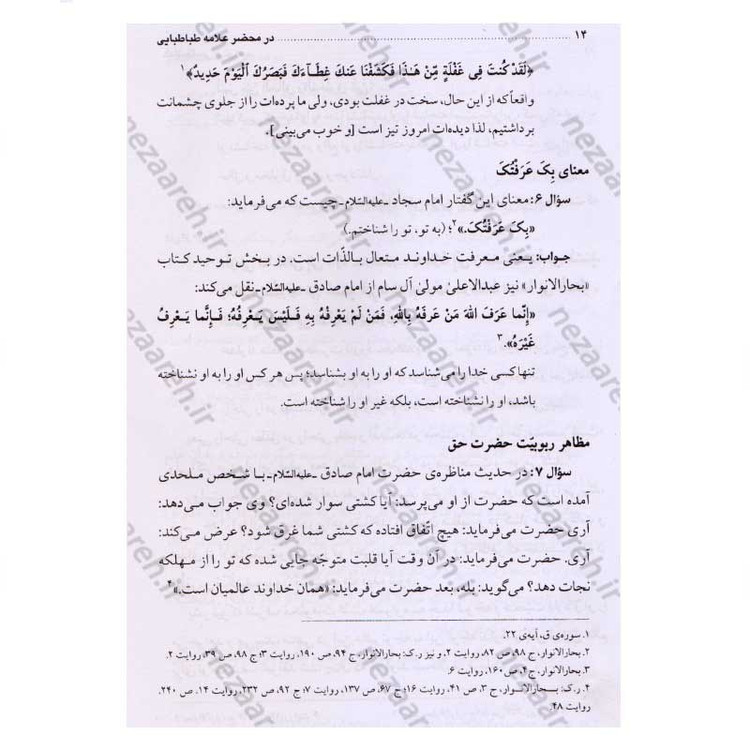 ۱۴ در محضر علامه طباطبایی
﴿لَقَدْ كُنتَ فِى غَفْلَةٍ مِّنْ هَـٰذَا فَكَشَفْنَا عَنكَ غِطَآءَكَ فَبَصَرُكَ ٱلْيَوْمَ حَدِيدٌ﴾۱
واقعاً که از این حال، سخت در غفلت بودی، ولی ما پرده‌ات را از جلوی چشمانت
برداشتیم، لذا دیده‌ات امروز تیز است [و خوب می‌بینی].
معنای بِکَ عَرَفْتُکَ
سؤال ۶: معنای این گفتار امام سجاد ـ علیه‌السّلام ـ چیست که می‌فرماید:
«بِکَ عَرَفْتُکَ.»۲؛ (به تو، تو را شناختم.)
جواب: یعنی معرفت خداوند متعال بالذّات است. در بخش توحید کتاب
«بحارالانوار» نیز عبدالاعلیٰ مولیٰ آل سام از امام صادق ـ علیه‌السّلام ـ نقل می‌کند:
«إنّما عَرَفَ اللهَ مَنْ عَرفَهُ بِاللهِ، فَمَنْ لَمْ يَعْرِفْهُ بِهِ فَلَيْسَ يَعْرِفُهُ؛ فَإنَّما يَعْرِفُ
غَيْرَهُ».۳
تنها کسی خدا را می‌شناسد که او را به او بشناسد؛ پس هر کس او را به او نشناخته
باشد، او را نشناخته است، بلکه غیر او را شناخته است.
مظاهر ربوبیّت حضرت حق
سؤال ۷: در حدیث مناظره‌ی حضرت امام صادق ـ علیه‌السّلام ـ با شخص ملحدی
آمده است که حضرت از او می‌پرسد: آیا کشتی سوار شده‌ای؟ وی جواب می‌دهد:
آری حضرت می‌فرماید: هیچ اتّفاق افتاده که کشتی شما غرق شود؟ عرض می‌کند:
آری. حضرت می‌فرماید: در آن وقت آیا قلبت متوجّه جایی شده که تو را از مهلکه
نجات دهد؟ می‌گوید: بله، بعد حضرت می‌فرماید: «همان خداوند عالمیان است.»۴
۱. سوره‌ی ق، آیه‌ی ۲۲.
۲. بحارالانوار، ج ۹۸، ص ۸۲، روایت ۲. و نیز ر.ک: بحارالانوار، ج ۹۴، ص ۱۹۰، روایت ۳؛ ج ۹۸، ص ۳۹، روایت ۲.
۳. بحارالانوار، ج ۴، ص ۱۶۰، روایت ۶.
۴. ر.ک: بـحارالانـوار، ج ۳، ص ۴۱، روایت ۱۶؛ ج ۶۷، ص ۱۳۷، روایت ۷؛ ج ۹۲، ص ۲۳۲، روایت ۱۴. ص ۲۴۰.
روایت ۴۸.
nezaareh.ir